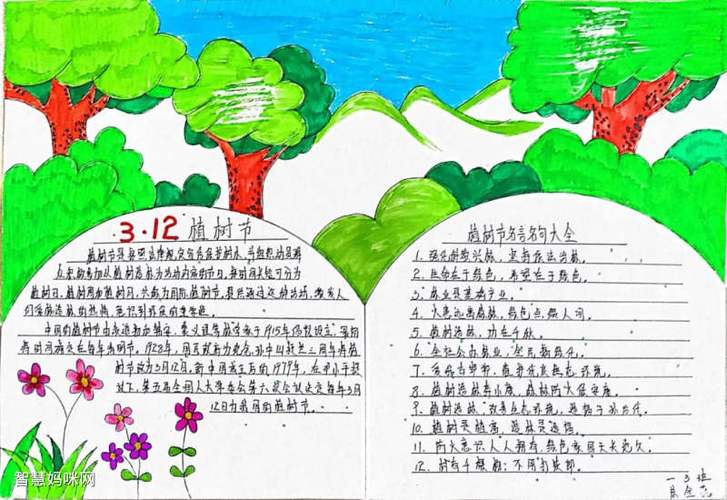 3.12 植树节
植树节是按照法律规定宣传保护树木,并组织动员群
众积极参加以植树造林为活动内容的节日。按时间长短可分为
植树日、植树周和植树月,共称为国际植树节。提倡通过这种活动,激发人
们爱林造林的热情、意识到环保的重要性。
中国的植树节由凌道扬和韩安、裴义理等林学家于1915年倡议设立,
将时间确定在每年清明节。1928年,国民政府为纪念孙中山逝世三周年将植
树节改为3月12日。新中国成立后的1979年,在邓小平提
议下,第五届全国人大常委会第六次会议决定每年3月
12日为我国的植树节。
植树节名言名句大全
1. 强化种教兴林,坚持依法治林。
2. 生命在于绿色,希望在于绿色。
3. 林业是基础产业。
4. 火患远离森林,绿色点缀人间。
5. 植树造林,功在千秋。
6. 全社会办林业,全民搞绿化。
7. 香花古串串,植树
8. 植树造林奔小康,
9. 植树造林,改善生态环境,造福子孙后代。
10. 植树是植富,造林是造福。
11. 防火意识人人拥有,绿色家园天长地久。
12. 封存千棵松,不用打柴郎。
一3班
智慧妈咪网